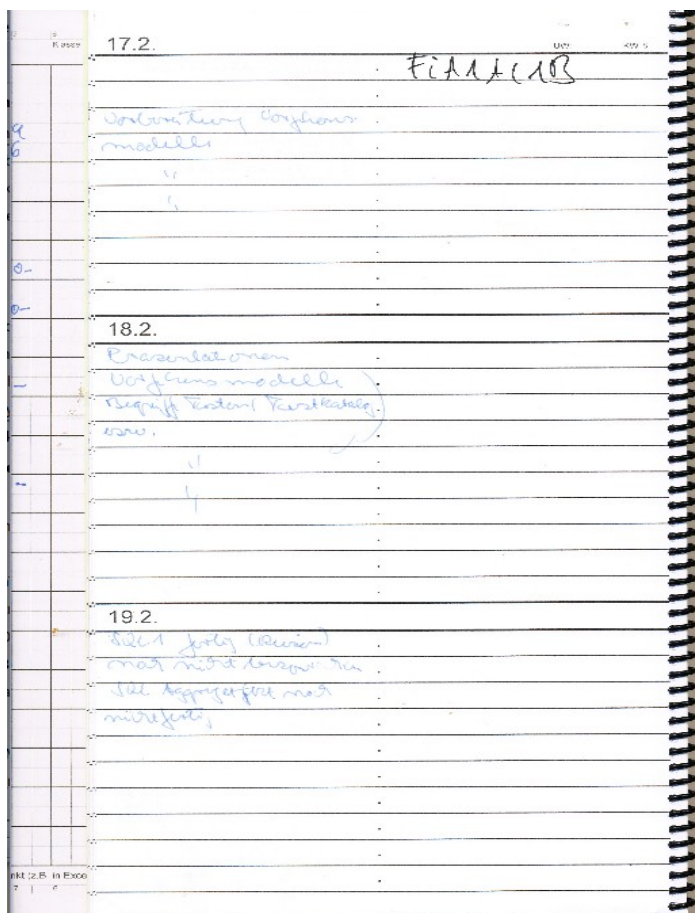 Klasse
17.2.
FiA1A(1B
Vorbereitung Vorgehens
modelle
"
"
18.2.
Präsentationen
Vorgehensmodelle
Begriffe Kosten/
usw.
"
"
19.2.
SQL 1 fertig
noch nicht besprochen
SQL noch
nicht fertig
nkt (z.B. in Exce
7 8